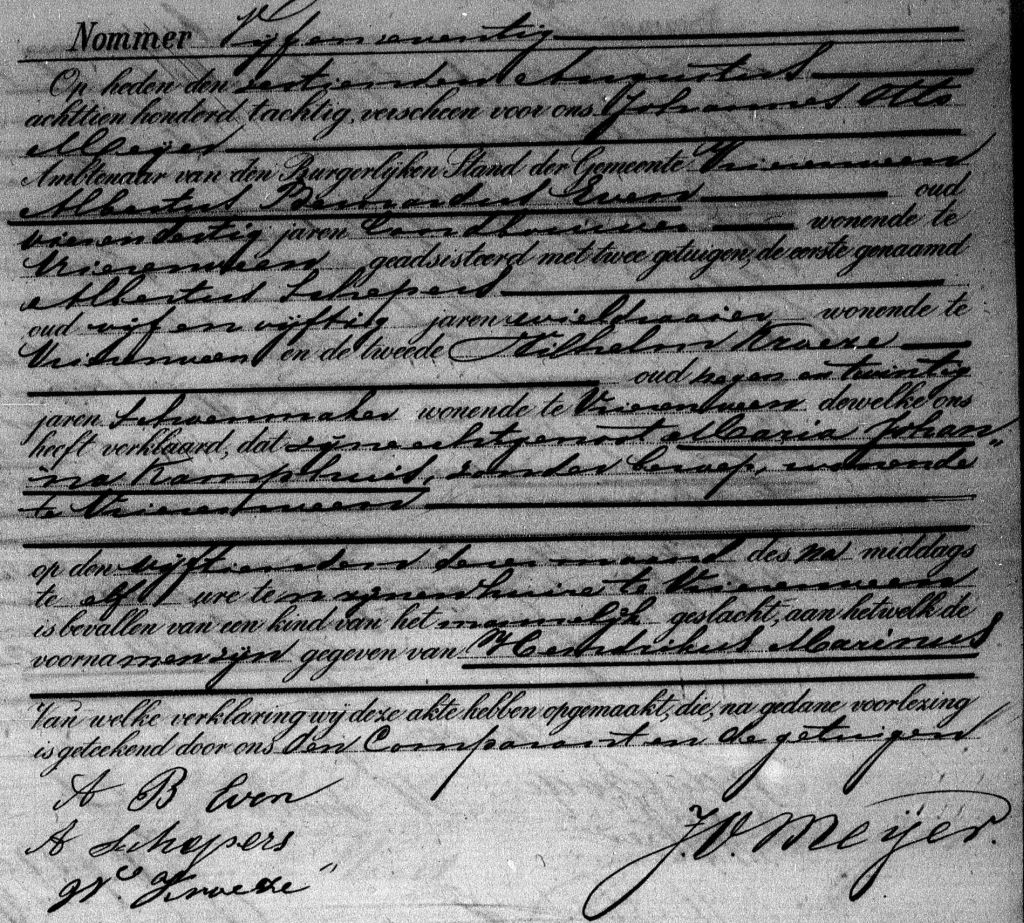 Nommer Vijfenzeventig
Op heden den zestienden Augustus
achttien honderd tachtig, verscheen voor ons Johannes Otto
Meijer
Ambtenaar van den Burgerlijken Stand der Gemeente Vriezenveen
Albertus Bernardus Even oud
vierendertig jaren Landbouwer wonende te
Vriezenveen geadsisteerd met twee getuigen, de eerste genaamd
Albertus Schepers
oud vijf en vijftig jaren wieldraaier wonende te
Vriezenveen en de tweede Wilhelm Kroeze
oud negen en twintig
jaren Schoenmaker wonende te Vriezenveen dewelke ons
heeft verklaard, dat zijne echtgenoot Maria Johan„
na Kamphuis, zonder beroep, wonende
te Vriezenveen
op den vijftienden dezer maand des na middags
te elf ure ten zijnen huize te Vriezenveen
is bevallen van een kind van het mannelijk geslacht, aan hetwelk de
voornamen zijn gegeven van Hendrikus Marinus
Van welke verklaring wij deze akte hebben opgemaakt, die, na gedane voorlezing
is geteekend door ons den Comparant en de getuigen
A B Even
A Schepers
J.O. Meijer.
Wm Kroeze